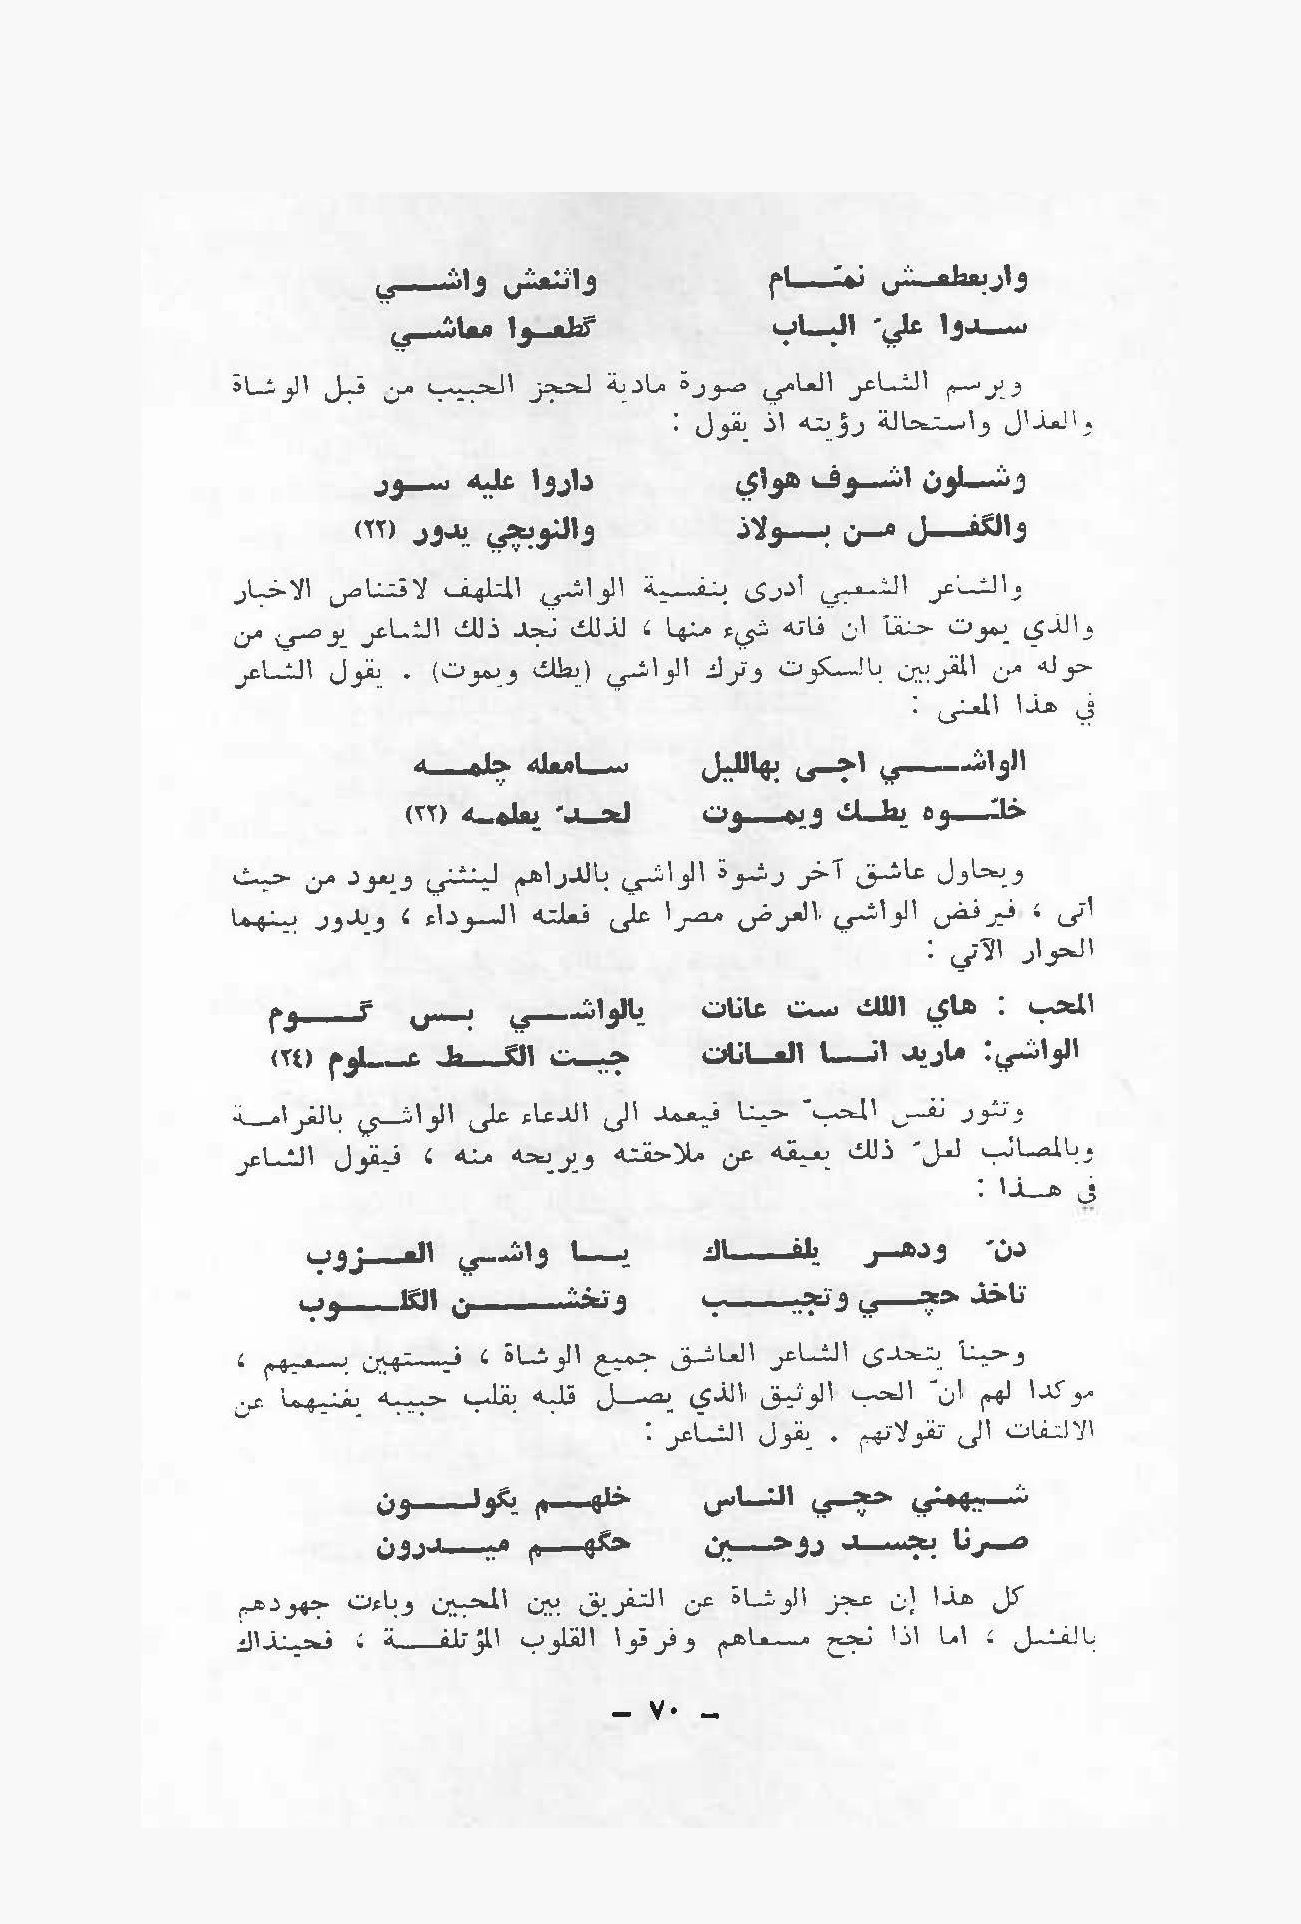 واربعطعش نمّام واثنعش واشي
سدوا عليّ الباب گطعوا معاشي
ويرسم الشاعر العامي صورة مادية لحجز الحبيب من قبل الوشاة
والعذال واستحالة رؤيته اذ يقول :
وشلون اشوف هواي داروا عليه سور
والگفل من بولاذ والنوبچي يدور (٢٢)
والشاعر الشعبي أدرى بنفسية الواشي المتلهف لاقتناص الاخبار
والذي يموت حنقاً ان فاته شيء منها ، لذلك نجد ذلك الشاعر يوصي من
حوله من المقربين بالسكوت وترك الواشي (يطك ويموت) . يقول الشاعر
في هذا المعنى :
الواشي اجى بهالليل سامعله چلمه
خلّوه يطك ويموت لحدّ يعلمه (٢٢)
ويحاول عاشق آخر رشوة الواشي بالدراهم لينثني ويعود من حيث
أتى ، فيرفض الواشي العرض مصرا على فعلته السوداء ، ويدور بينهما
الحوار الآتي :
المحب : هاي اللك ست عانات يالواشي بس گوم
الواشي: ماريد انا العانات جيت الگط علوم (٢٤)
وتثور نفس المحبّ حينا فيعمد الى الدعاء على الواشي بالغرامة
وبالمصائب لعلّ ذلك يعيقه عن ملاحقته ويريحه منه ، فيقول الشاعر
في هذا :
دنّ ودهر يلفاك يا واشي العزوب
تاخذ حچي وتجيب وتخشن الگلوب
وحيناً يتحدى الشاعر العاشق جميع الوشاة ، فيستهين بسعيهم ،
موكدا لهم انّ الحب الوثيق الذي يصل قلبه بقلب حبيبه يغنيهما عن
الالتفات الى تقولاتهم . يقول الشاعر :
شيهمني حچي الناس خلهم يگولون
صرنا بجسد روحين حگهم ميدرون
كل هذا إن عجز الوشاة عن التفريق بين المحبين وباءت جهودهم
بالفشل ، اما اذا نجح مسعاهم وفرقوا القلوب المؤتلفة ، فحينذاك
– ٧٠ –